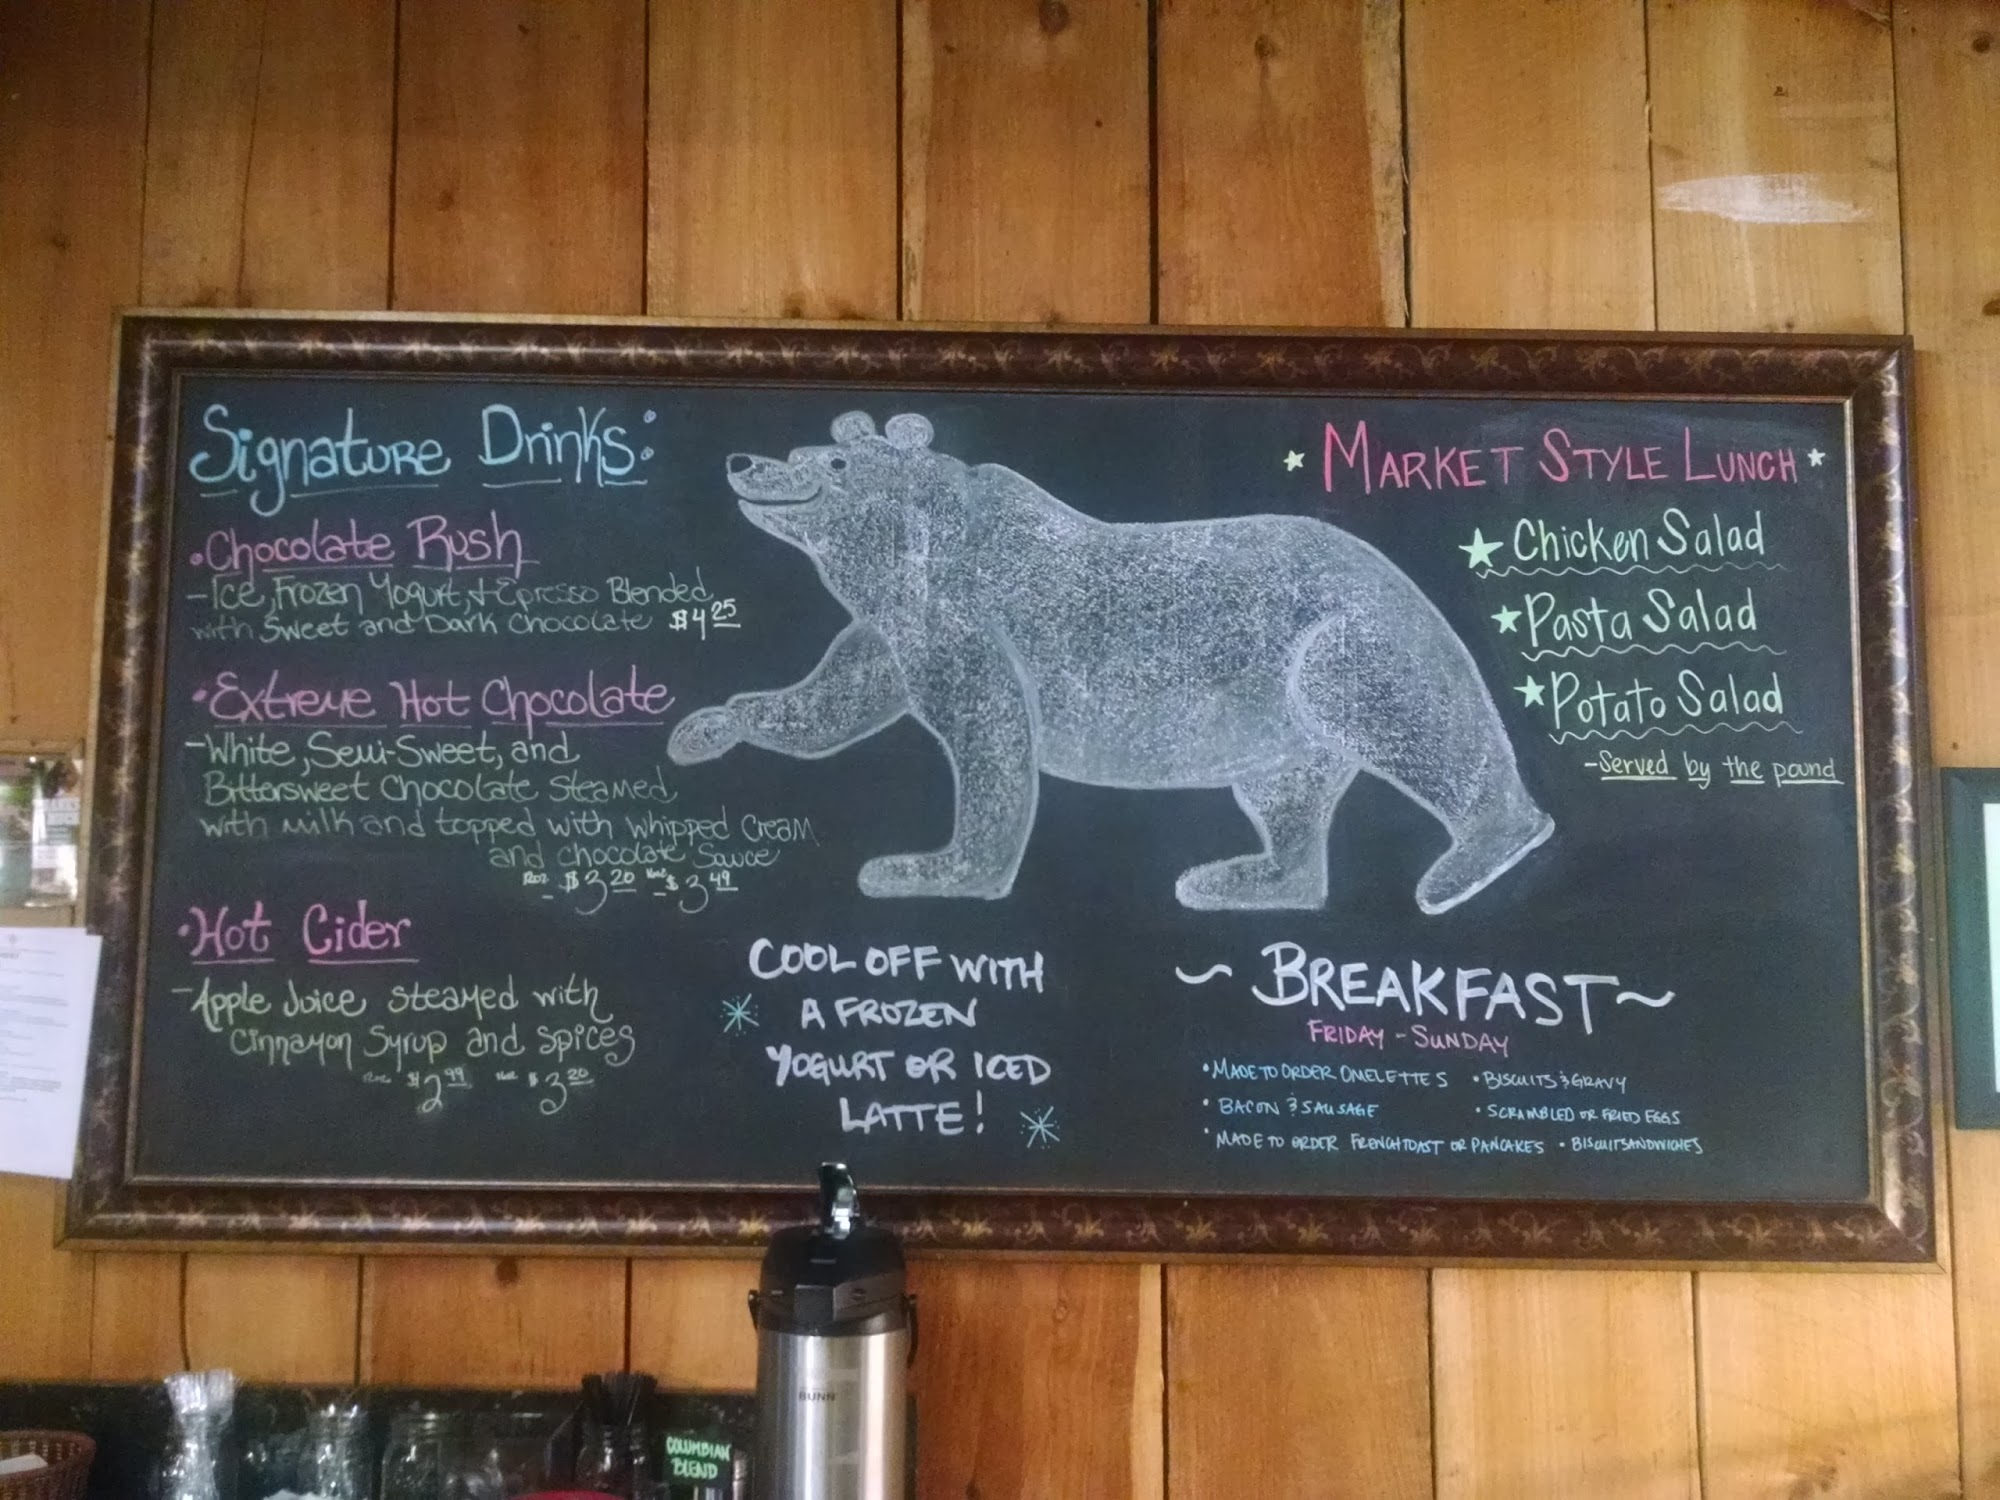 Signature Drinks:
• Chocolate Rush
- Ice, Frozen Yogurt, + Epresso Blended
with Sweet and Dark Chocolate $4 25
• Extreme Hot Chocolate
- White, Semi-Sweet, and
Bittersweet Chocolate Steamed
with milk and topped with whipped Cream
and chocolate Sauce
12oz $3 20 16oz $3 49
• Hot Cider
- Apple Juice steamed with
Cinnamon Syrup and spices
12oz $2 99 16oz $3 20
COOL OFF WITH
A FROZEN
YOGURT OR ICED
LATTE!
MARKET STYLE LUNCH
Chicken Salad
Pasta Salad
Potato Salad
- Served by the pound
~ BREAKFAST ~
FRIDAY - SUNDAY
• MADE TO ORDER OMELETTES • BISCUITS & GRAVY
• BACON & SAUSAGE • SCRAMBLED OR FRIED EGGS
• MADE TO ORDER FRENCH TOAST OR PANCAKES • BISCUIT SANDWICHES
BUNN
COLUMBIAN
BLEND